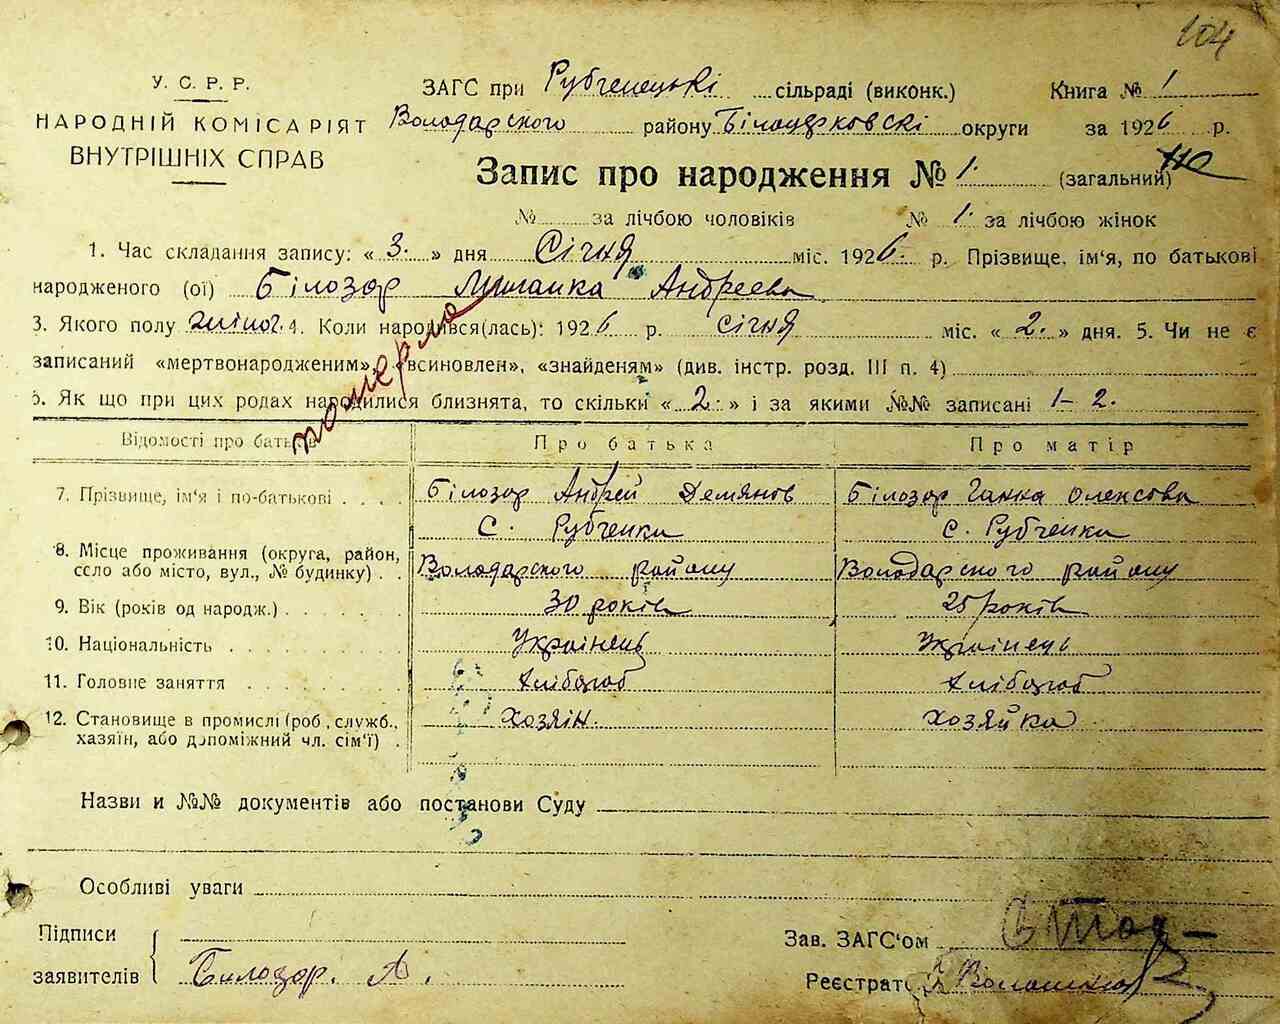 104
У. С. Р. Р.
НАРОДНІЙ КОМІСАРІЯТ
ВНУТРІШНІХ СПРАВ
ЗАГС при Рубченецькі сільраді (виконк.) Книга № 1
Володарского району Білоцерковскі округи за 1926 р.
Запис про народження № 1. (загальний)
№ за лічбою чоловіків № 1. за лічбою жінок
1. Час складання запису: « 3. » дня Січня міс. 1926. р. Прізвище, ім'я, по батькові
народженого (ої) Білозор Андреева
померла
3. Якого полу жіноч. 4. Коли народився(лась): 1926 р. січня міс. « 2. » дня. 5. Чи не є
записаний «мертвонародженим», «всиновлен», «знайденям» (див. інстр. розд. III п. 4)
6. Як що при цих родах народилися близнята, то скільки « 2. » і за якими №№ записані 1- 2.
Відомості про батьків Про батька Про матір
7. Прізвище, ім'я і по-батькові . . . . Білозор Андрей Демянов Білозор Ганка Олексова
С. Рубченки С. Рубченки
8. Місце проживання (округа, район,
село або місто, вул., № будинку) . . Володарского району Володарского району
9. Вік (років од народж.) . . . . . . 30 років 25 років
10. Національність . . . . . . . . Українець Українець
11. Головне заняття . . . . . . . Хлібороб Хлібороб
12. Становище в промислі (роб., служб., Хозяін. Хозяйка
хазяїн, або допоміжний чл. сім'ї) .
Назви и №№ документів або постанови Суду
Особливі уваги
Підписи
заявителів Билозор. А.
Зав. ЗАГС'ом
Реєстратор